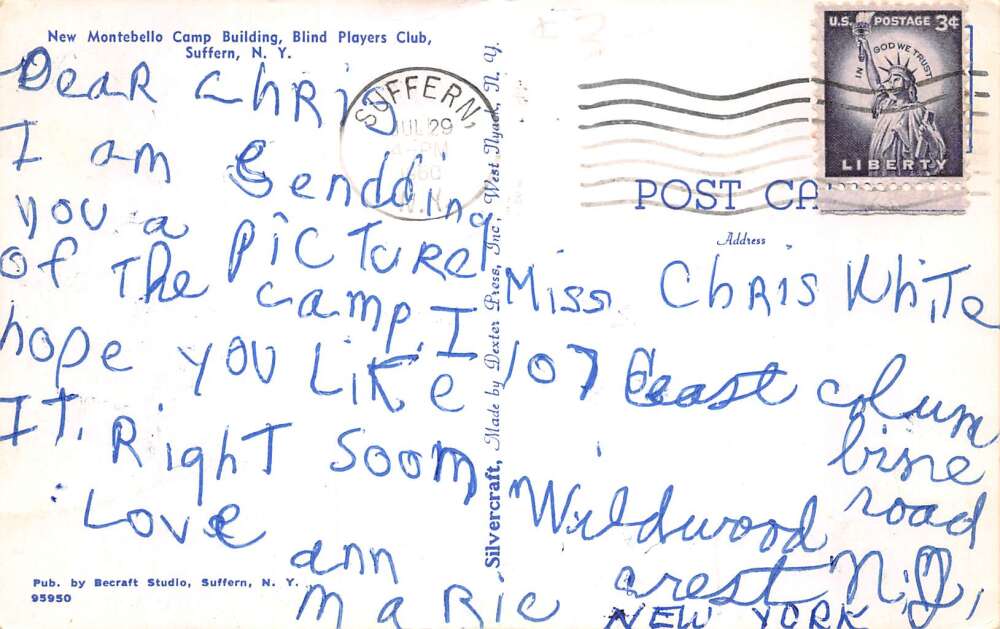 New Montebello Camp Building, Blind Players Club,
Suffern, N. Y.
Dear Chris
I am Sendding
you a PICTURE
of The camp. I
hope you LIKE
IT. RighT Soom
Love
ann
Marie
Pub. by Becraft Studio, Suffern, N. Y.
95950
Silvercraft, Made by Dexter Press, Inc., West Nyack, N. Y.
SUFFERN,
JUL 29
PM
1960
N.Y.
U.S. POSTAGE 3¢
IN GOD WE TRUST
LIBERTY
POST CA
Address
Miss Chris White
107 East colum
bine
road
Wildwood
crest N.J.
NEW YORK